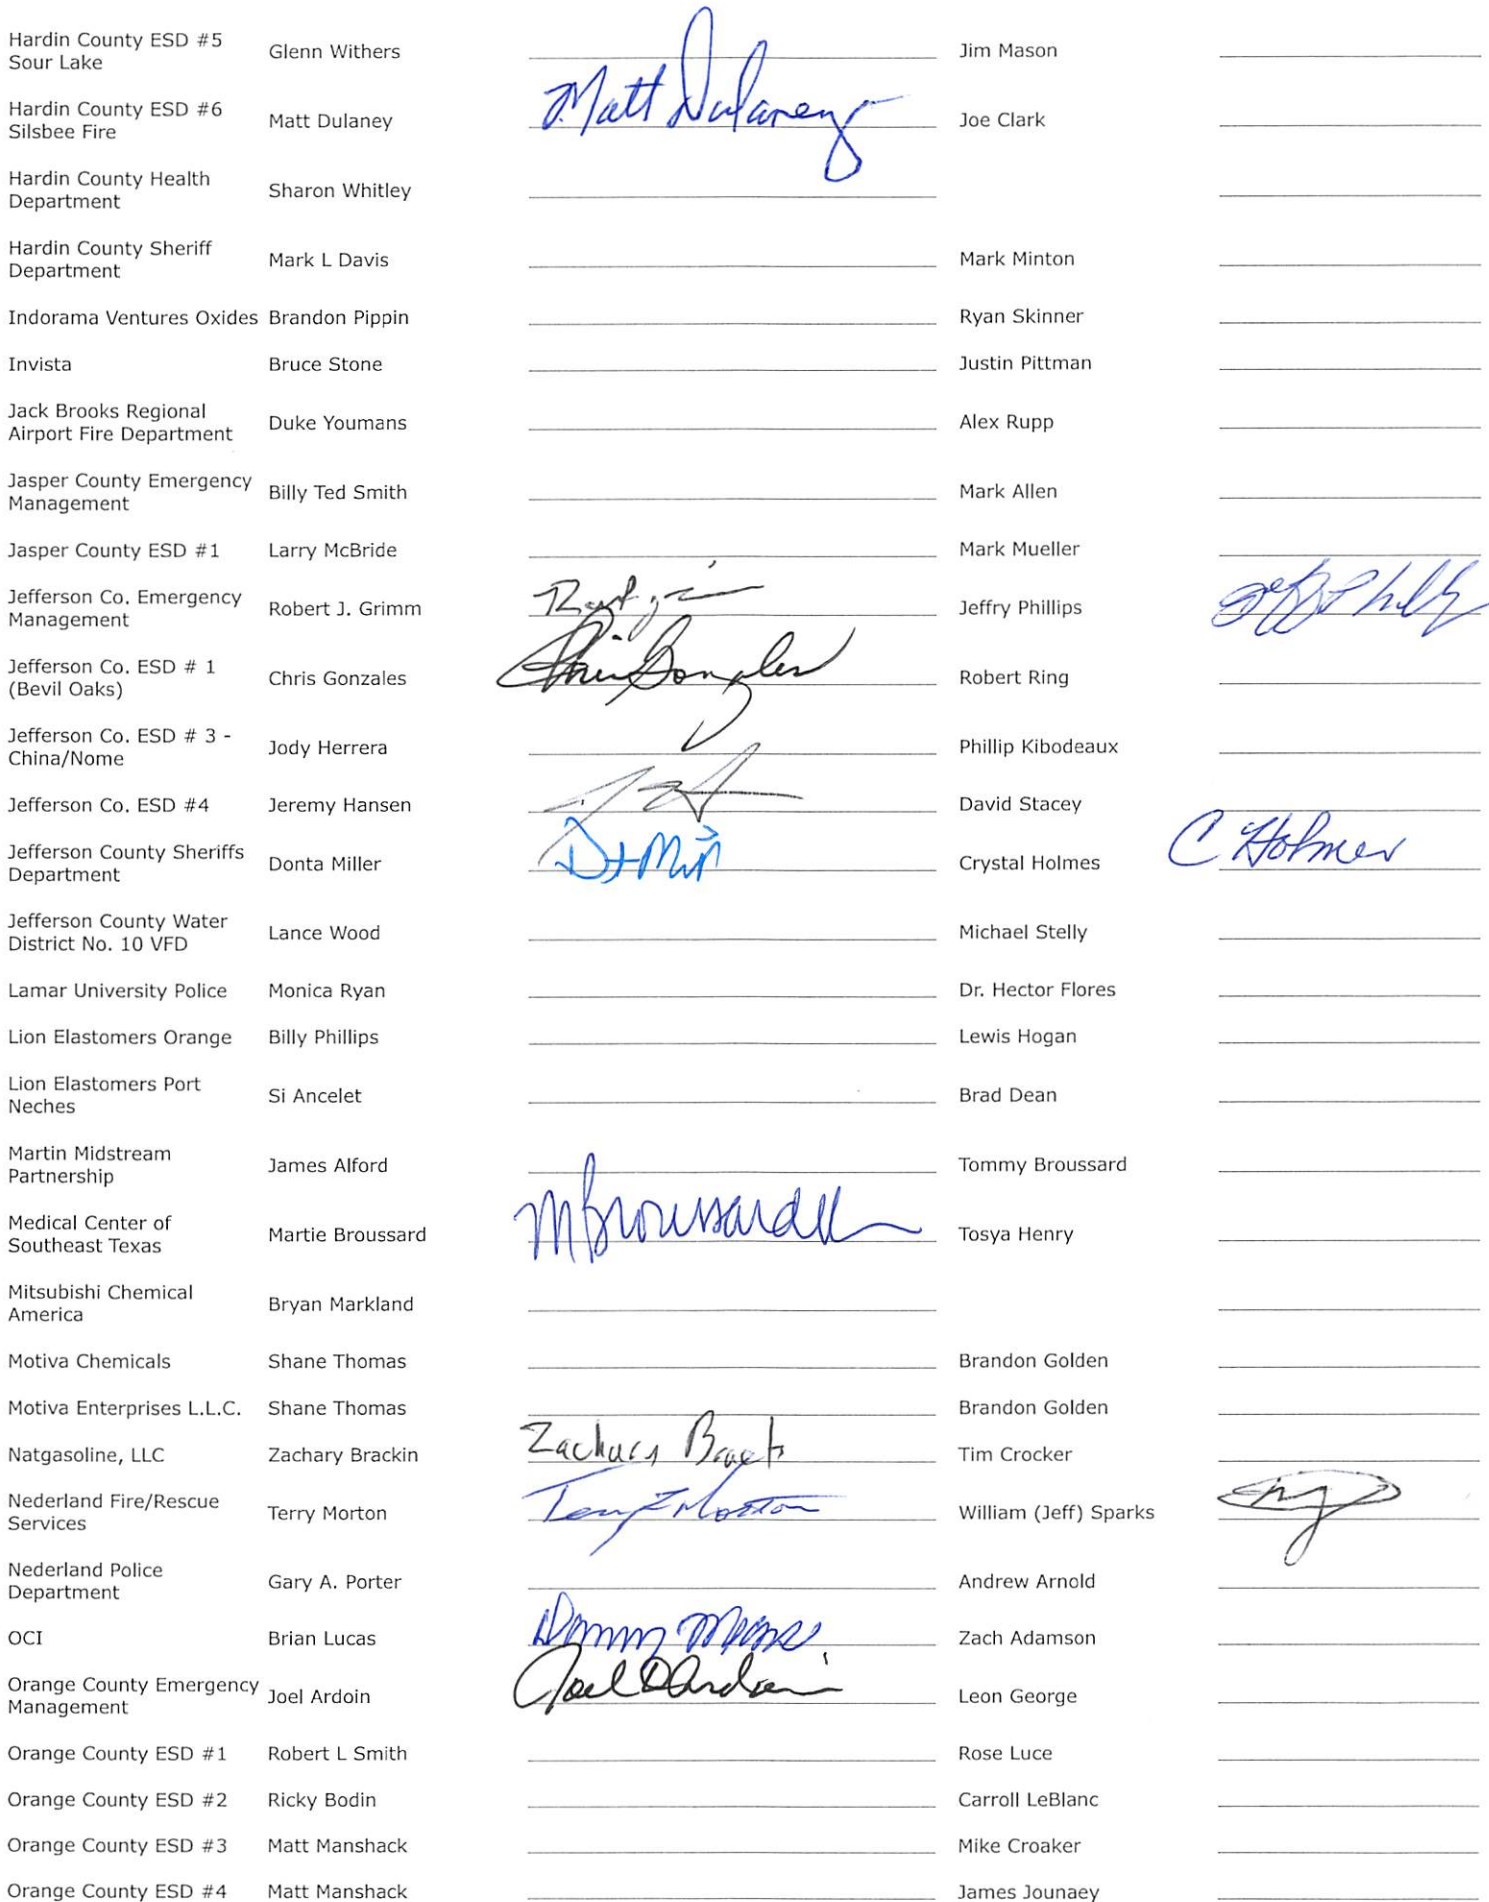 Hardin County ESD #5 Sour Lake Glenn Withers Jim Mason
Hardin County ESD #6 Silsbee Fire Matt Dulaney Matt Dulaney Joe Clark
Hardin County Health Department Sharon Whitley
Hardin County Sheriff Department Mark L Davis Mark Minton
Indorama Ventures Oxides Brandon Pippin Ryan Skinner
Invista Bruce Stone Justin Pittman
Jack Brooks Regional Airport Fire Department Duke Youmans Alex Rupp
Jasper County Emergency Management Billy Ted Smith Mark Allen
Jasper County ESD #1 Larry McBride Mark Mueller
Jefferson Co. Emergency Management Robert J. Grimm Jeffry Phillips
Jefferson Co. ESD # 1 (Bevil Oaks) Chris Gonzales Chris Gonzales Robert Ring
Jefferson Co. ESD # 3 - China/Nome Jody Herrera Phillip Kibodeaux
Jefferson Co. ESD #4 Jeremy Hansen David Stacey
Jefferson County Sheriffs Department Donta Miller Crystal Holmes C Holmes
Jefferson County Water District No. 10 VFD Lance Wood Michael Stelly
Lamar University Police Monica Ryan Dr. Hector Flores
Lion Elastomers Orange Billy Phillips Lewis Hogan
Lion Elastomers Port Neches Si Ancelet Brad Dean
Martin Midstream Partnership James Alford Tommy Broussard
Medical Center of Southeast Texas Martie Broussard MBroussard Tosya Henry
Mitsubishi Chemical America Bryan Markland
Motiva Chemicals Shane Thomas Brandon Golden
Motiva Enterprises L.L.C. Shane Thomas Brandon Golden
Natgasoline, LLC Zachary Brackin Zachary Tim Crocker
Nederland Fire/Rescue Services Terry Morton Terry Morton William (Jeff) Sparks
Nederland Police Department Gary A. Porter Andrew Arnold
OCI Brian Lucas Zach Adamson
Orange County Emergency Management Joel Ardoin Joel Ardoin Leon George
Orange County ESD #1 Robert L Smith Rose Luce
Orange County ESD #2 Ricky Bodin Carroll LeBlanc
Orange County ESD #3 Matt Manshack Mike Croaker
Orange County ESD #4 Matt Manshack James Jounaey